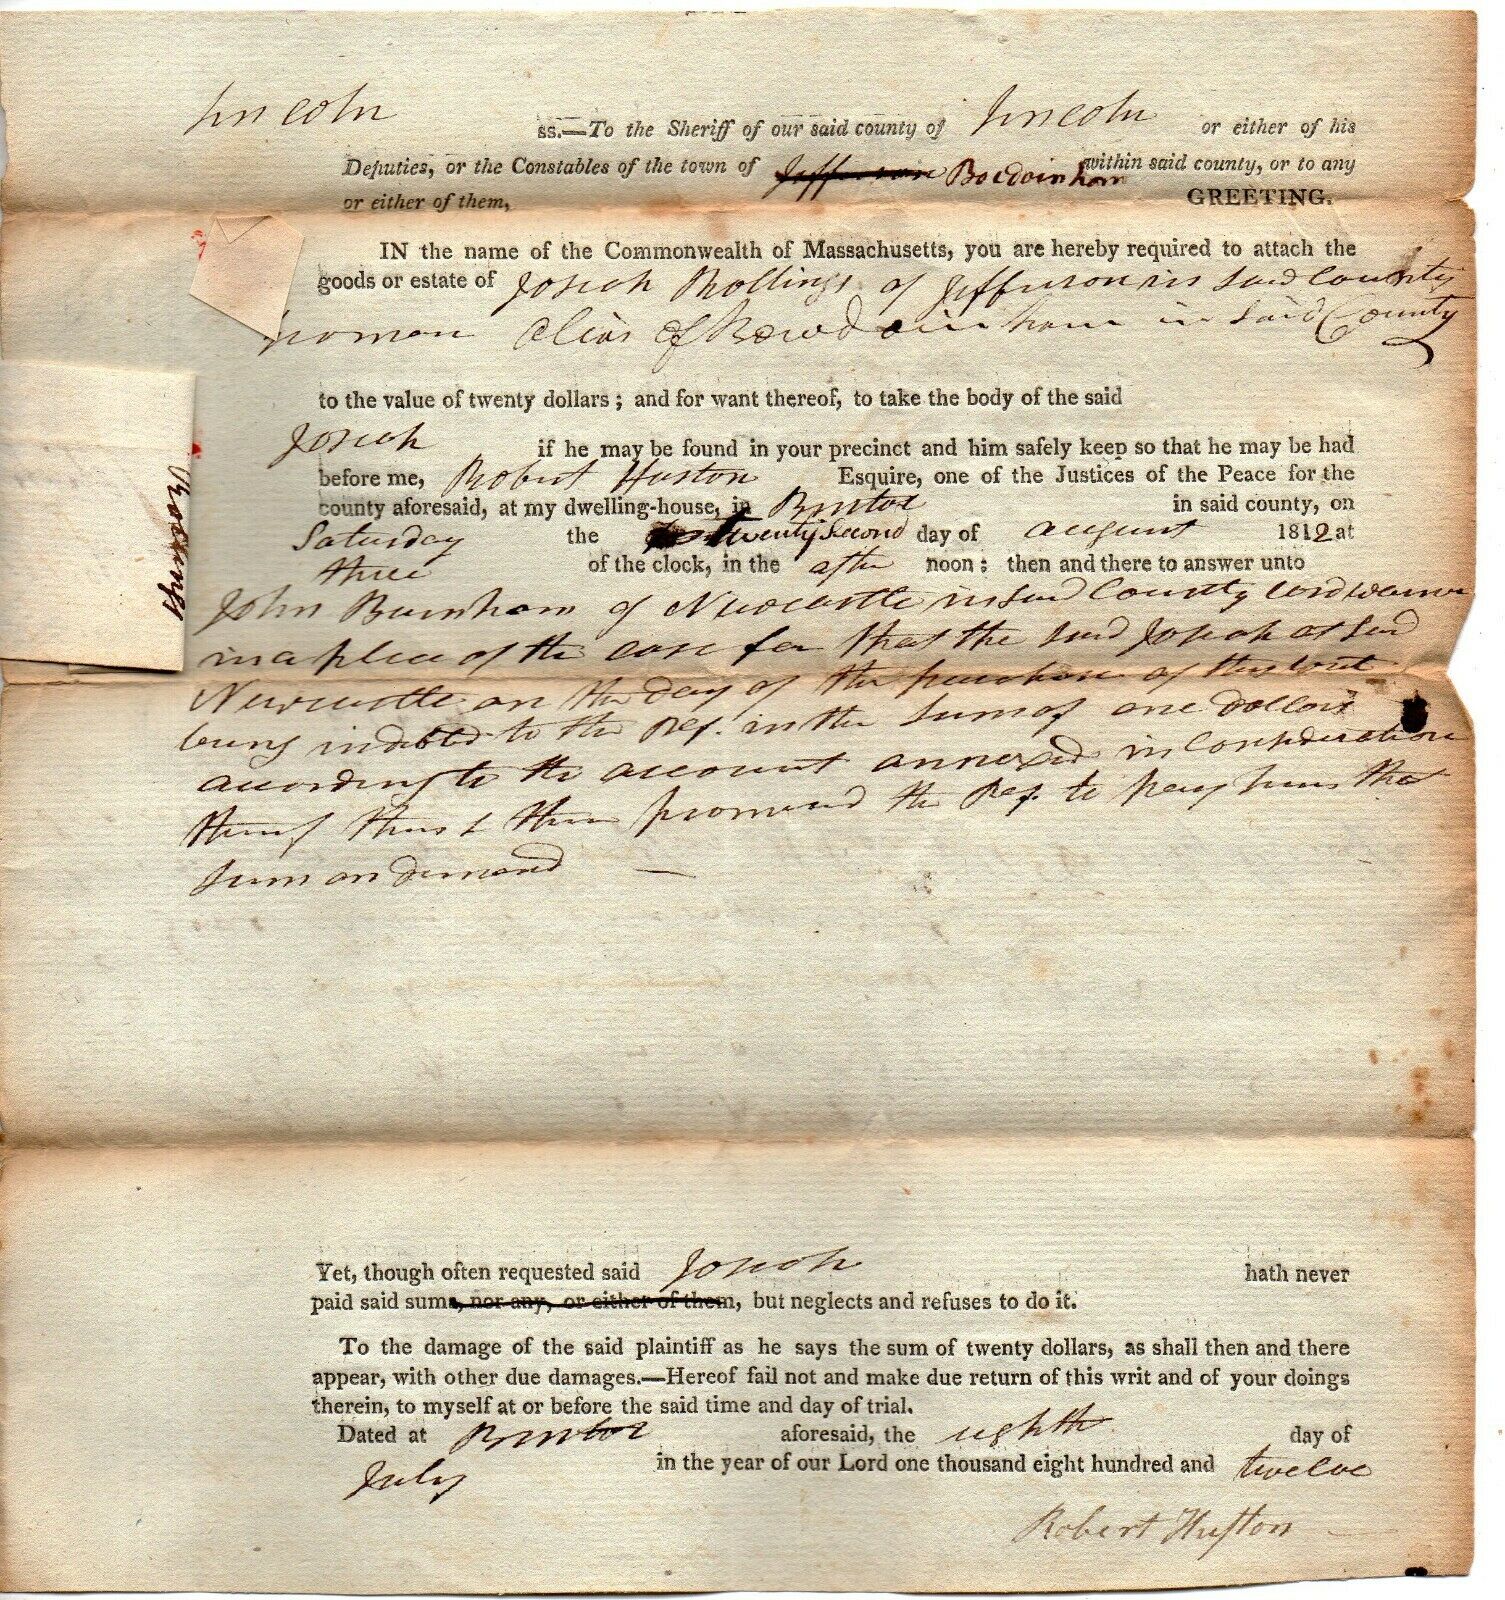 Lincoln ss.—To the Sheriff of our said county of Lincoln or either of his
Deputies, or the Constables of the town of Jefferson Bowdoinham within said county, or to any
or either of them, GREETING.
IN the name of the Commonwealth of Massachusetts, you are hereby required to attach the
goods or estate of Josiah Rollings of Jefferson in said County
yeoman alias of Bowdoinham in said County
to the value of twenty dollars; and for want thereof, to take the body of the said
Josiah if he may be found in your precinct and him safely keep so that he may be had
before me, Robert Huston Esquire, one of the Justices of the Peace for the
county aforesaid, at my dwelling-house, in Bristol in said county, on
Saturday the twenty second day of august 1812 at
three of the clock, in the after noon: then and there to answer unto
John Burnham of Newcastle in said County cordwainer
in a plea of the case for that the said Josiah at said
Newcastle on the day of the purchase of this writ
being indebted to the Plef. in the sum of one dollar
according to the account annexed in Consideration
thereof then & there promised the Plef. to pay him that
sum on demand —
Yet, though often requested said Josiah hath never
paid said sums, nor any, or either of them, but neglects and refuses to do it.
To the damage of the said plaintiff as he says the sum of twenty dollars, as shall then and there
appear, with other due damages.—Hereof fail not and make due return of this writ and of your doings
therein, to myself at or before the said time and day of trial.
Dated at Bristol aforesaid, the eighth day of
July in the year of our Lord one thousand eight hundred and twelve
Robert Huston